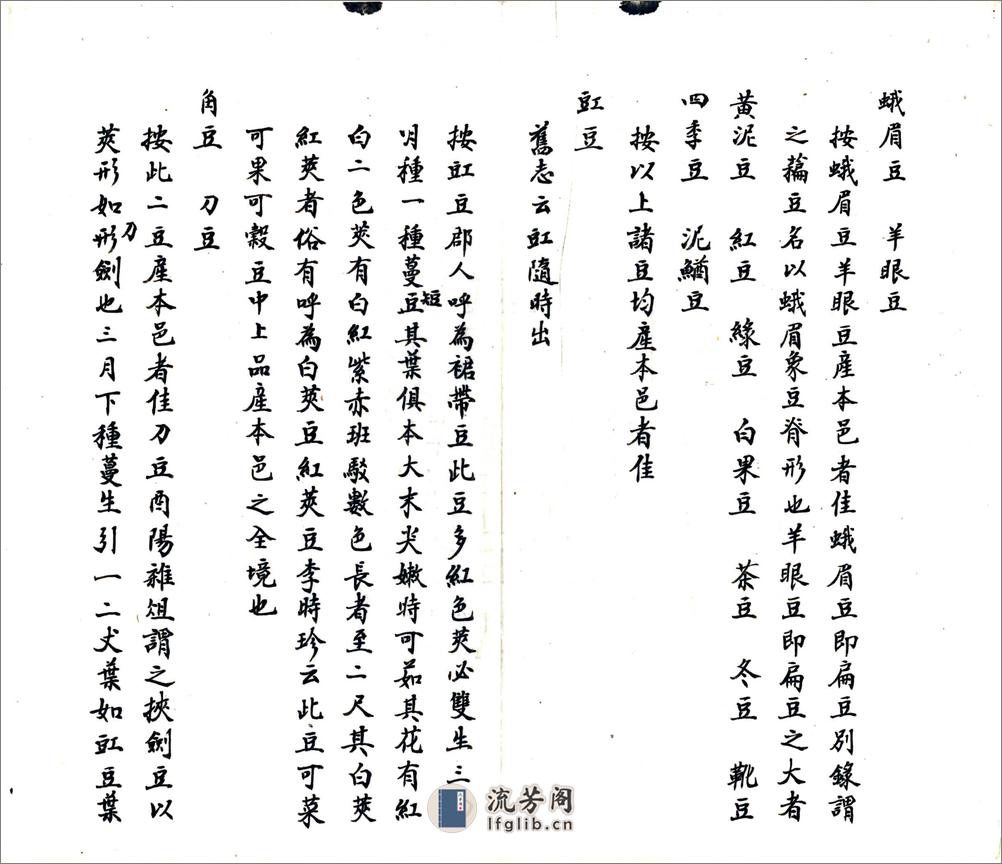 蛾眉豆　羊眼豆
按蛾眉豆羊眼豆産本邑者佳蛾眉豆即扁豆别錄謂
之藊豆名以蛾眉象豆脊形也羊眼豆即扁豆之大者
黄泥豆　紅豆　綠豆　白果豆　茶豆　冬豆　靴豆
四季豆　泥鰌豆
按以上諸豆均産本邑者佳
豇豆
舊志云豇隨時出
按豇豆郡人呼為裙帶豆此豆多紅色莢必雙生三
月種一種蔓短豆其葉俱本大末尖嫩時可茹其花有紅
白二色莢有白紅紫赤班駁數色長者至二尺其白莢
紅莢者俗有呼為白莢豆紅莢豆李時珍云此豆可菜
可果可穀豆中上品産本邑之全境也
角豆　刀豆
按此二豆産本邑者佳刀豆酉陽雜俎謂之挾劍豆以
莢形如刀形劍也三月下種蔓生引一二丈葉如豇豆葉
流芳阁
lfglib.cn